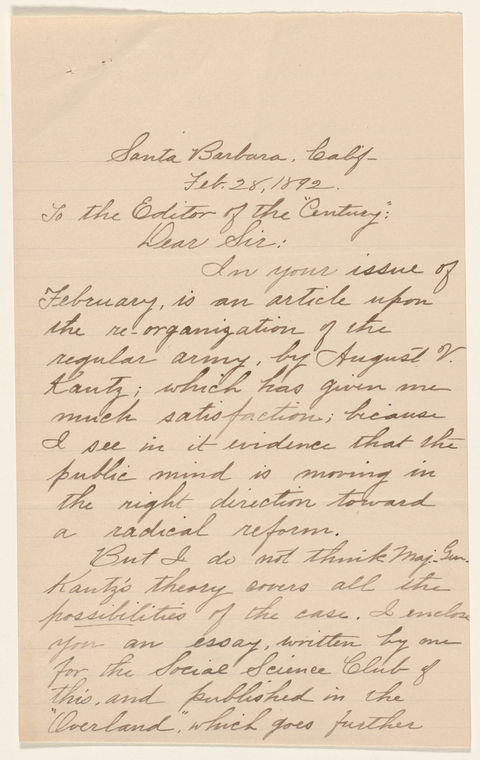 Santa Barbara, Calif-
Feb. 28, 1892.
To the Editor of the "Century":
Dear Sir:
In your issue of
February, is an article upon
the re-organization of the
regular army, by August V.
Kautz; which has given me
much satisfaction; because
I see in it evidence that the
public mind is moving in
the right direction toward
a radical reform.
But I do not think Maj-Gen.
Kautz's theory covers all the
possibilities of the case. I enclose
you an essay, written by me
for the Social Science Club of
this, and published in the
"Overland", which goes further